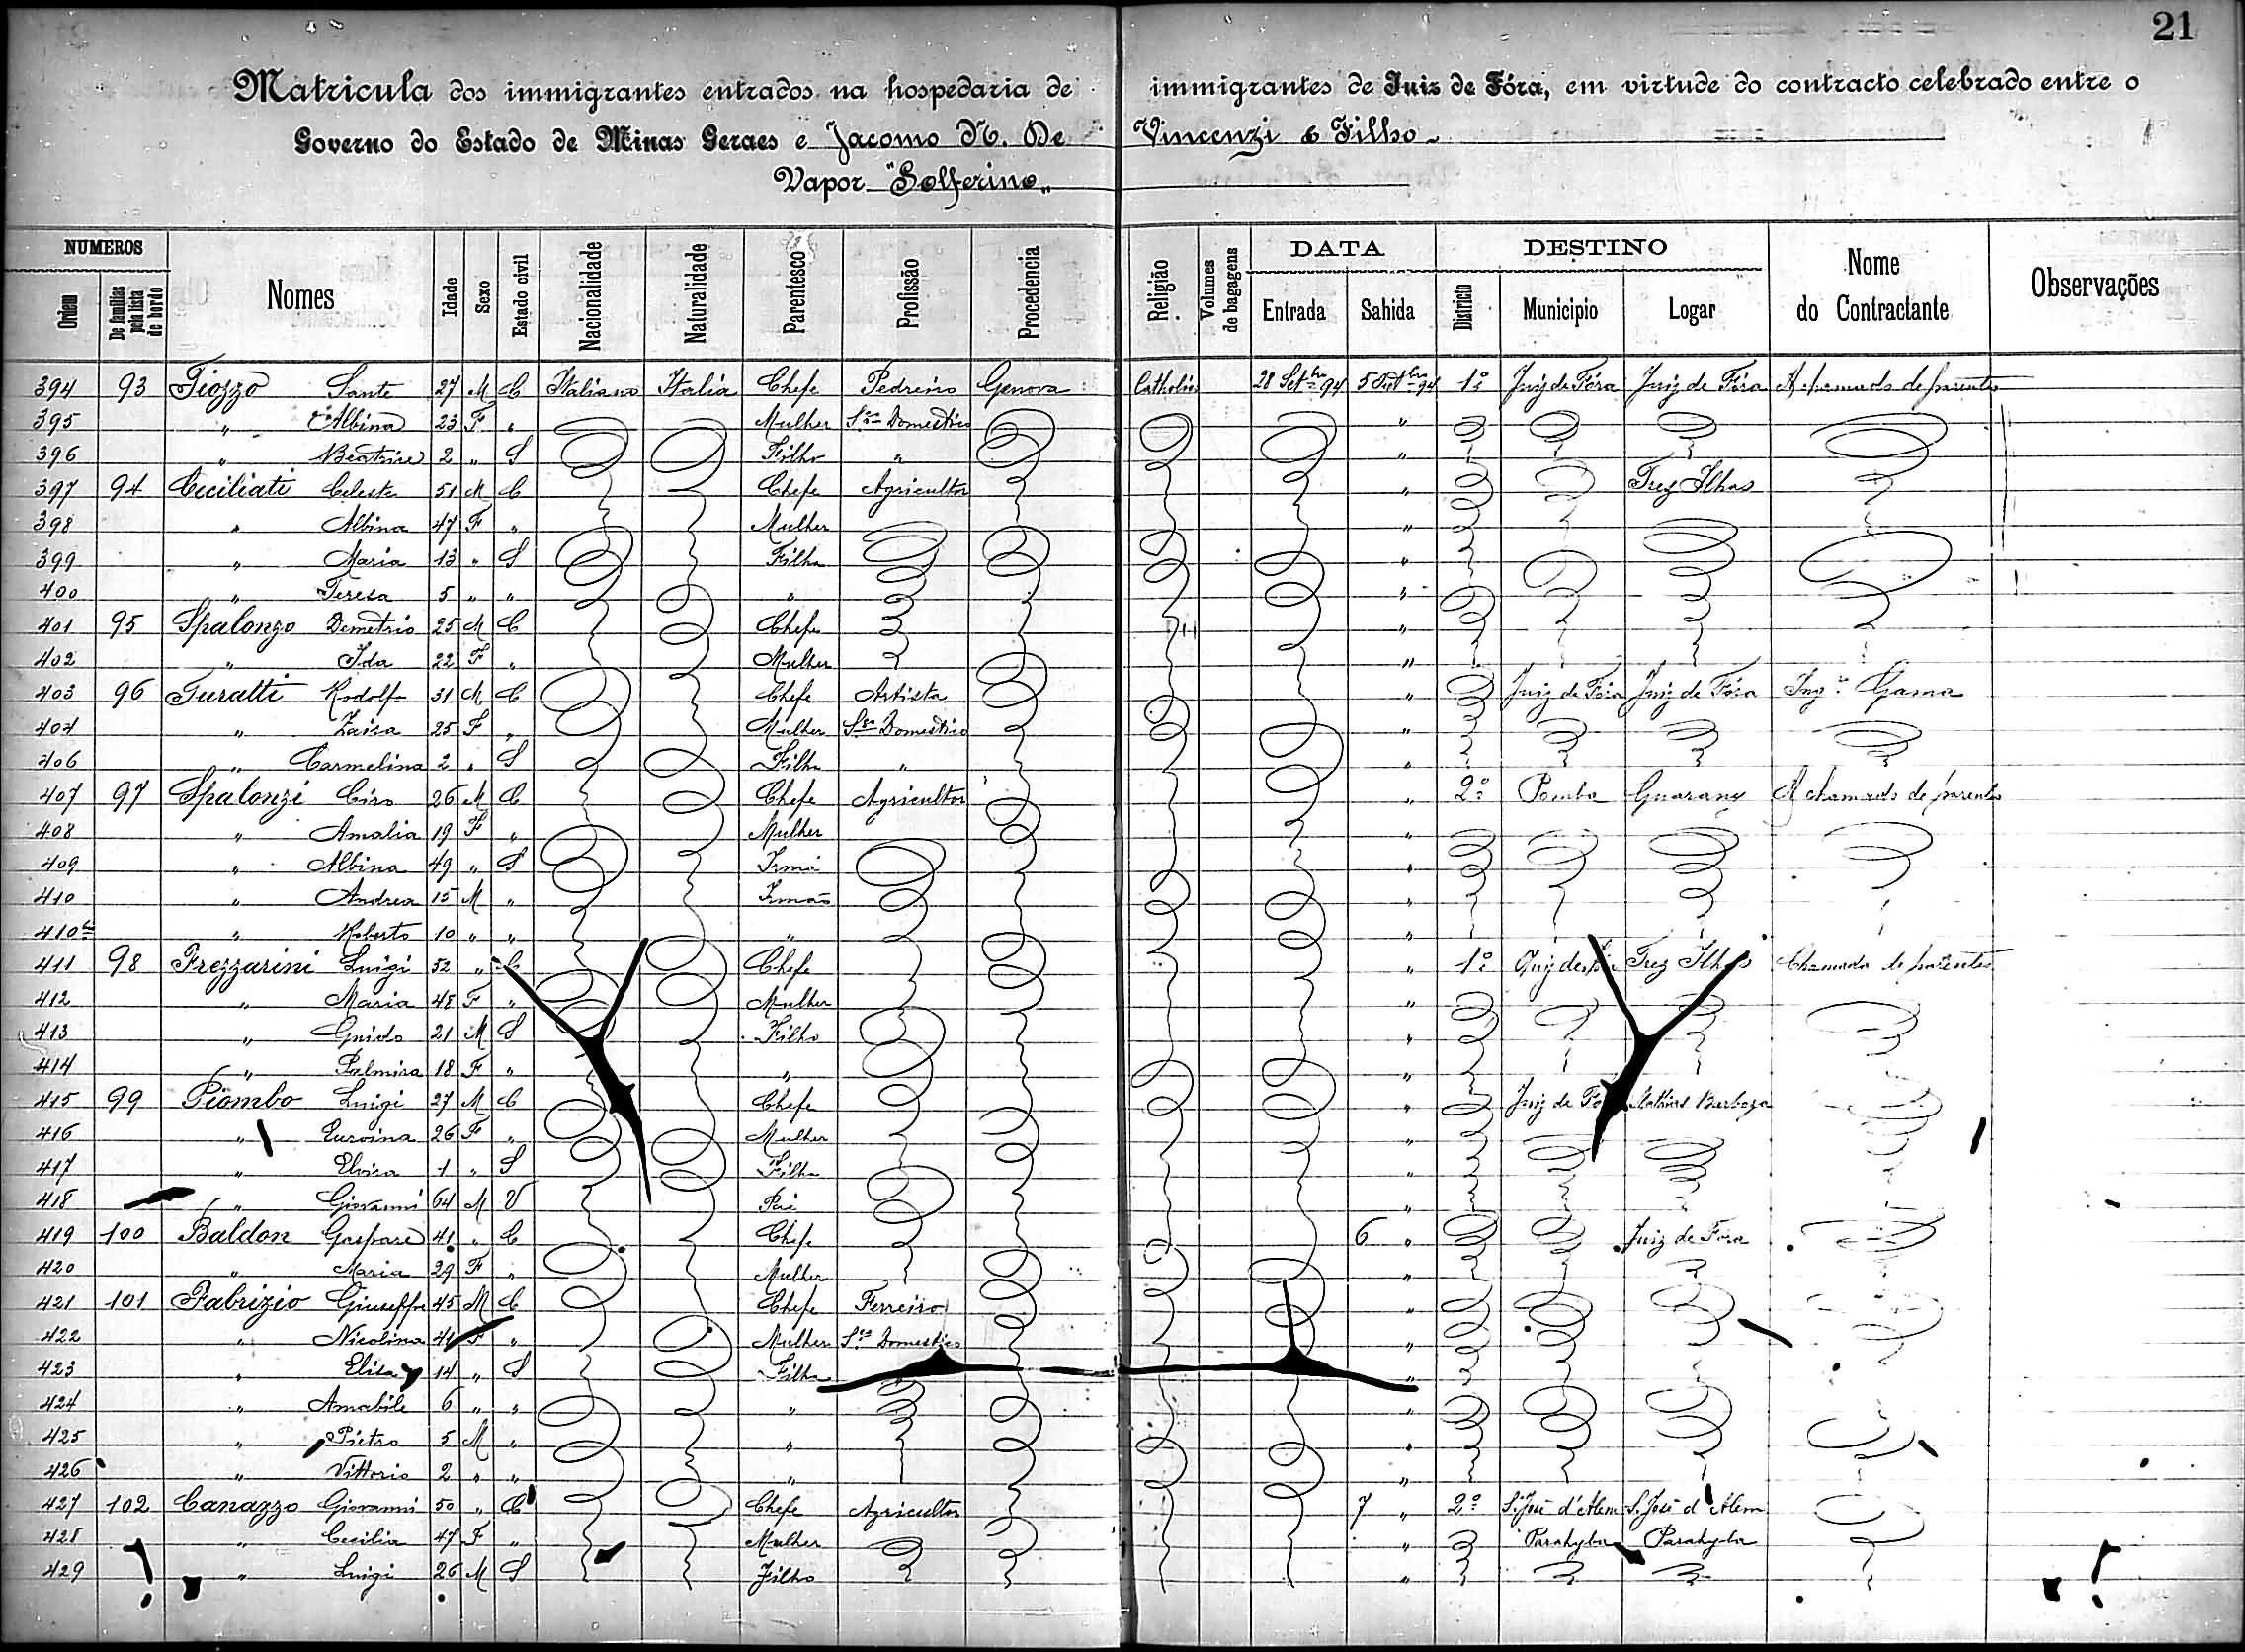 21
Matricula dos immigrantes entrados na hospedaria de immigrantes de Juiz de Fóra, em virtude do contracto celebrado entre o
Governo do Estado de Minas Geraes e Jacomo N. De Vincenzi & Filho
Vapor "Solferino"
NUMEROS DATA DESTINO
Ordem De familias pela lista de bordo Nomes Idade Sexo Estado civil Nacionalidade Naturalidade Parentesco Profissão Procedencia Religião Volumes de bagagens Entrada Sahida Districto Municipio Logar Nome do Contractante Observações
394 93 Tiozzo Sante 27 M C Italiano Italia Chefe Pedreiro Genova Catholica 28 Setbro 94 5 94 1º Juiz de Fóra Juiz de Fóra A chamado de parentes
395 " Albina 23 F " Mulher Sço Domestico "
396 " Beatrice 2 " S Filha " "
397 94 Ceciliati Celeste 51 M C Chefe Agricultor " Trez Ilhas
398 " Albina 47 F " Mulher "
399 " Maria 13 " S Filha "
400 " Teresa 5 " " " "
401 95 Spalonzo Demetrio 25 M C Chefe "
402 " Ida 22 F " Mulher "
403 96 Turatti Rodolfo 31 M C Chefe Artista " Juiz de Fóra Juiz de Fóra Gama
404 " Zaira 25 F " Mulher Sço Domestico "
406 " Carmelina 2 " S Filha " "
407 97 Spalonzi Ciro 26 M C Chefe Agricultor " 2º Pomba Guarany A chamado de parentes
408 " Amalia 19 F " Mulher "
409 " Albina 49 " S Irmã "
410 " Andrea 15 M " Irmão "
410 bis " Roberto 10 " " " "
411 98 Frezzarini Luigi 52 " C Chefe " 1º Juiz de Trez Ilhas Chamado de parentes
412 " Maria 48 F " Mulher "
413 " Guido 21 M S Filho "
414 " Palmira 18 F " " "
415 99 Piombo Luigi 27 M C Chefe " Juiz de Fó Mathias Barboza
416 " 26 F " Mulher "
417 " Elvira 1 " S Filha "
418 " Giovanni 64 M V Pai "
419 100 Baldon Gaspare 41 " C Chefe 6 " Juiz de Fora
420 " Maria 29 F " Mulher "
421 101 Fabrizio Giuseppe 45 M C Chefe Ferreiro "
422 " Nicolina 41 F " Mulher Sço Domestico "
423 " Elisa 14 " S Filha "
424 " Amabile 6 " " " "
425 " Pietro 5 M " " "
426 " Vittorio 2 " " " "
427 102 Canazzo Giovanni 50 " C Chefe Agricultor 7 " 2º S. José d'Alem S. José d'Alem
428 " Cecilia 47 F " Mulher " Parahyba Parahyba
429 " Luigi 26 M S Filho "